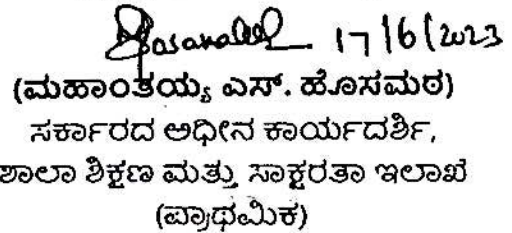 17/6/2023
(ಮಹಾಂತಯ್ಯ ಎಸ್. ಹೊಸಮಠ)
ಸರ್ಕಾರದ ಅಧೀನ ಕಾರ್ಯದರ್ಶಿ,
ಶಾಲಾ ಶಿಕ್ಷಣ ಮತ್ತು ಸಾಕ್ಷರತಾ ಇಲಾಖೆ
(ಪ್ರಾಥಮಿಕ)